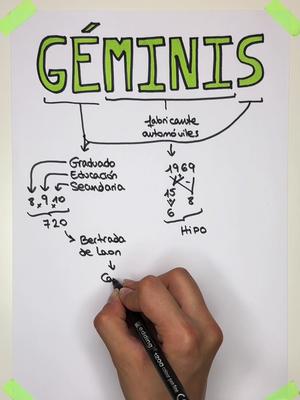 GÉMINIS
fabricante
automóviles
Graduado
Educación
Secundaria
8 x 9 x 10
720
Bertrada
de Laon
1969
15 8
6
HIPO
edding 1200